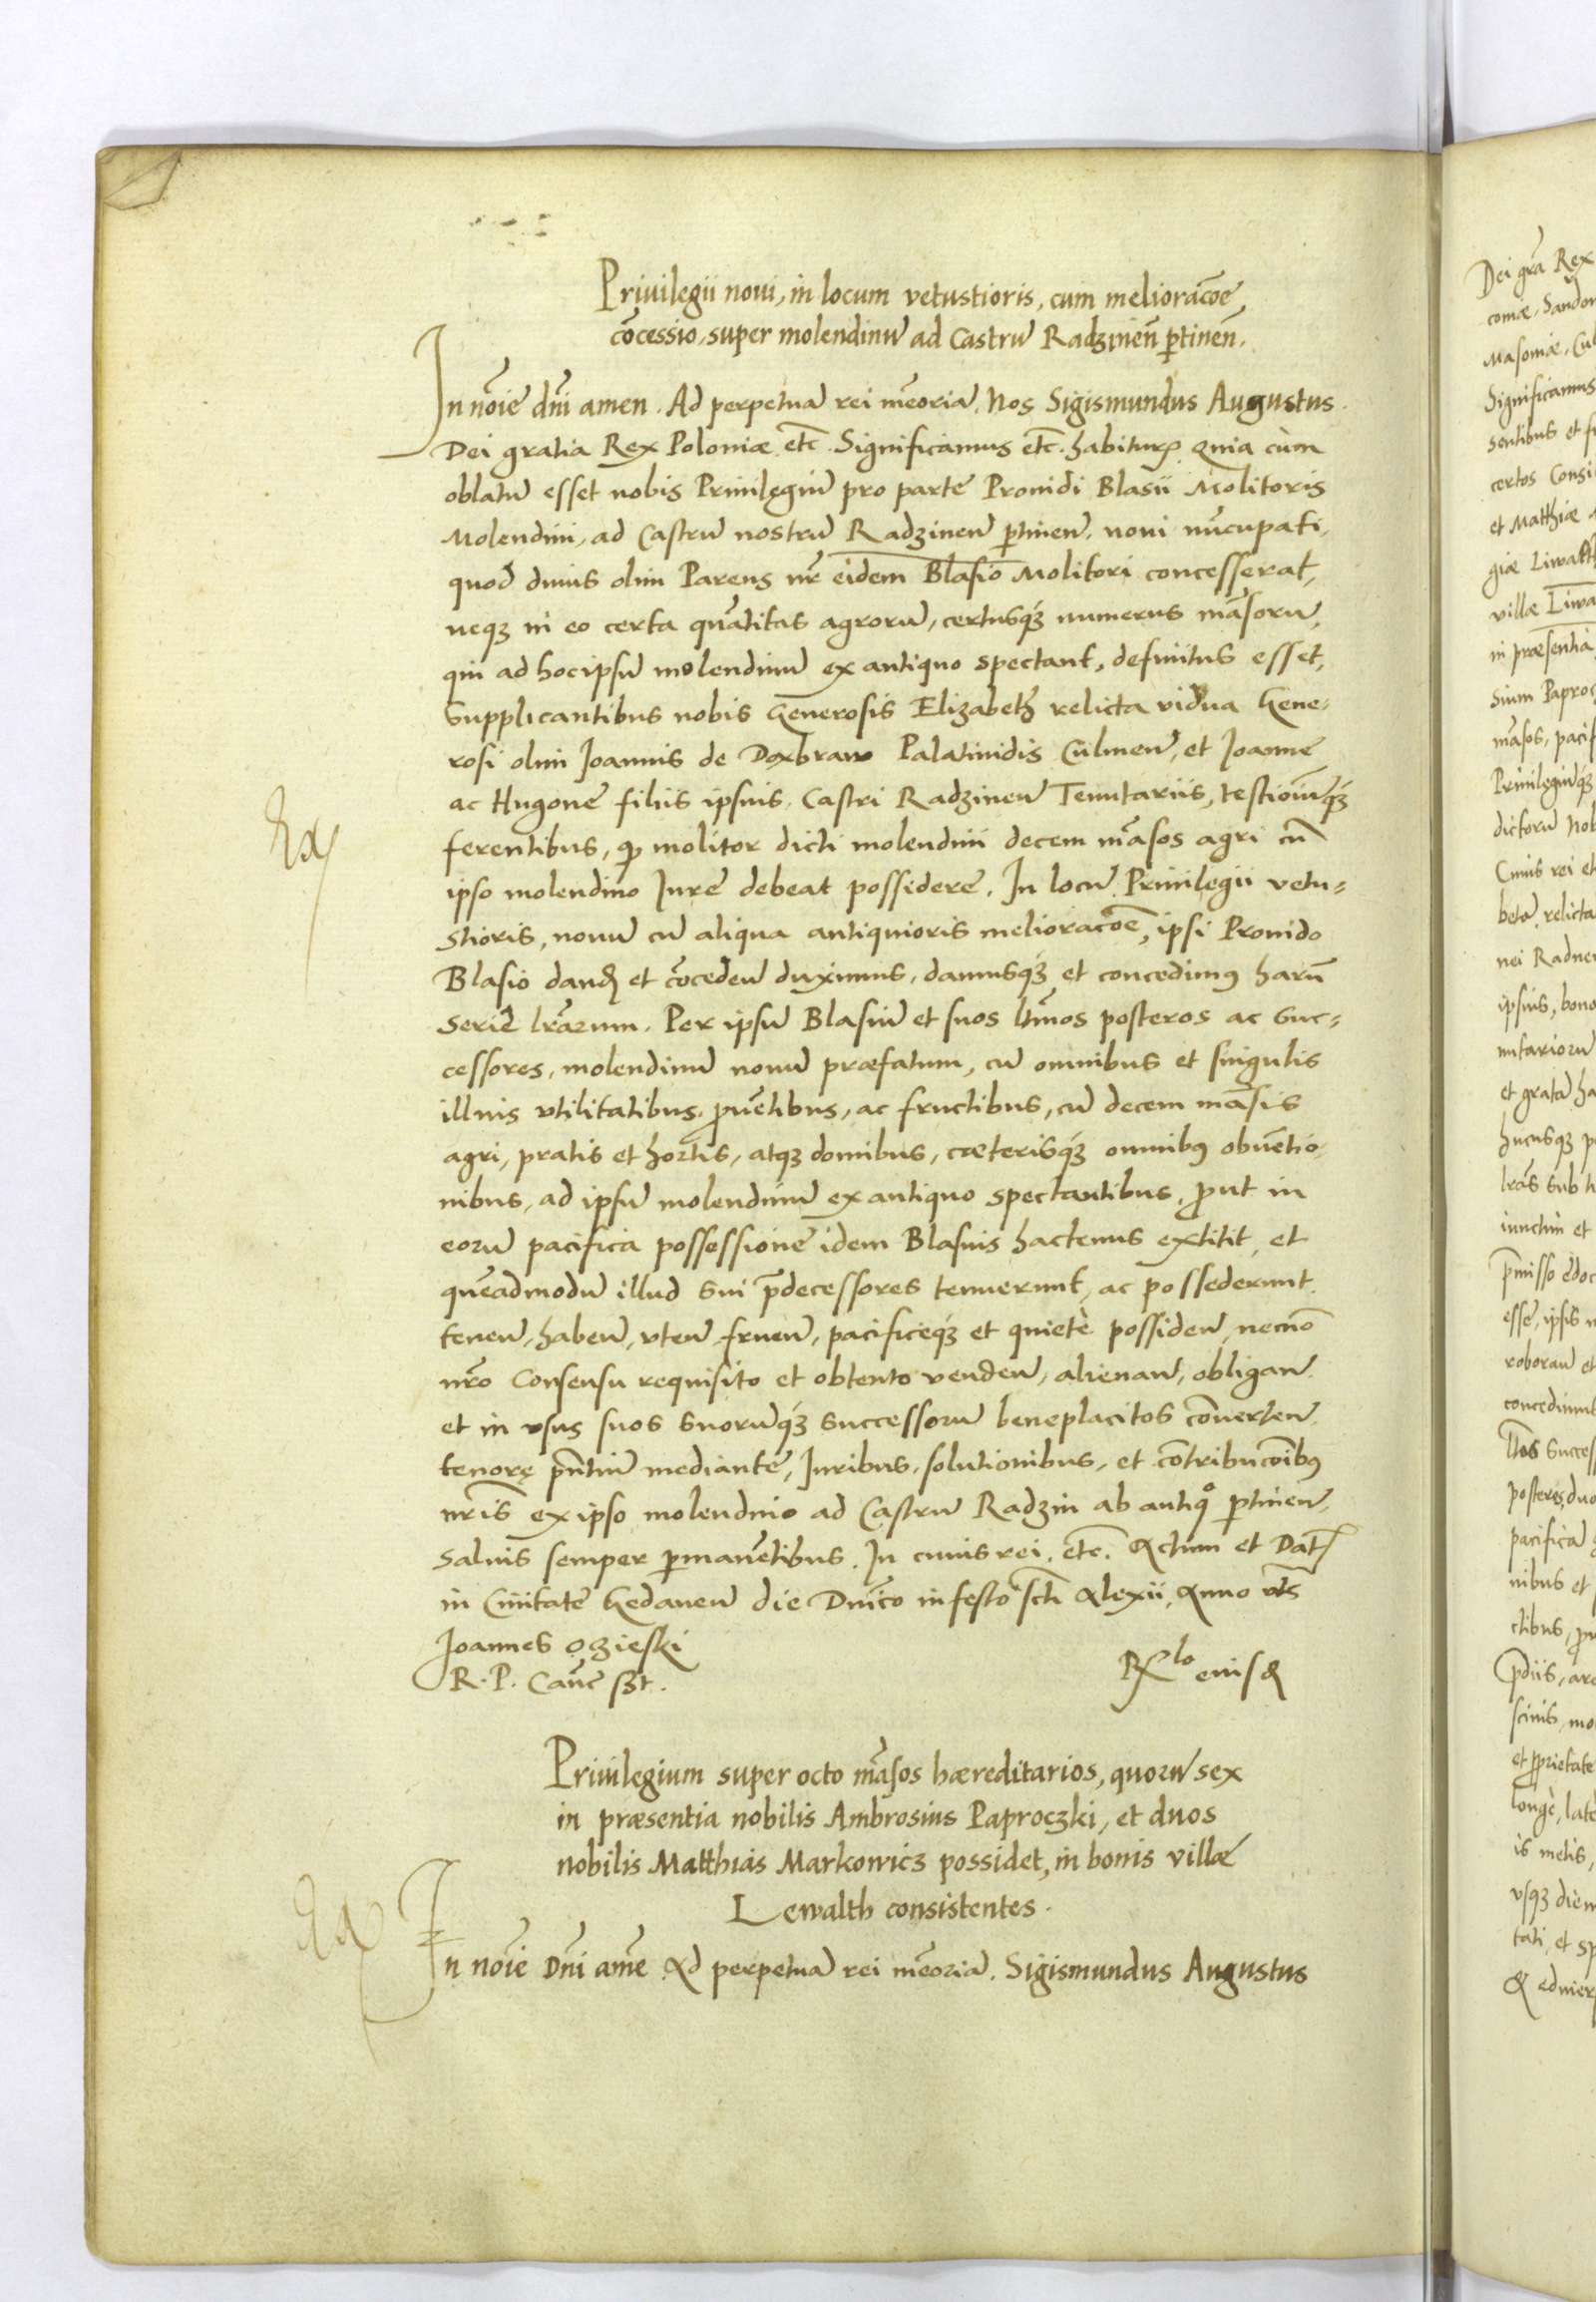 Priuilegii noui, in locum vetustioris, cum melioracõe,
cõcessio, super molendinũ ad Castrũ Radzineñ ptineñ.
In nõie dñi amen. Ad perpetuã rei mẽoriã. Nos Sigismundus Augustus
Dei gratia Rex Poloniæ etc̃. Significamus etc̃. habituris. Quia cùm
oblatũ esset nobis Priuilegiũ pro parte Prouidi Blasii Molitoris
Molendini, ad Castrũ nostrũ Radzineñ ptineñ. noui nũcupati,
quod diuus olim Parens nr̃ eidem Blasio Molitori concesserat,
neq3 in eo certa quãtitas agrorũ, certusq́3 numerus mãsorũ,
qui ad hoc ipsũ molendinũ ex antiquo spectant, definitus esset,
Supplicantibus nobis Generosis Elizabeth relicta vidua Gene-
rosi olim Joannis de Doxbraw Palatinidis Culmeñ, et Joanne
ac Hugone filiis ipsius, Castri Radzineñ Tenutariis, testiõiũq́3
ferentibus, q molitor dicti molendini decem mãsos agri cũ
ipso molendino Jure debeat possidere. In locũ Priuilegii vetu-
stioris, nouũ cũ aliqua antiquioris melioracõe, ipsi Prouido
Blasio dand et cõcedeñ duximus, damusq́3 et concedimus harũ
serie lrãrum. Per ipsũ Blasiũ et suos ltĩmos posteros ac suc-
cessores, molendinũ nouũ præfatum, cũ omnibus et singulis
illius vtilitatibus, puẽtibus, ac fructibus, cũ decem mãsis
agri, pratis et hortis, atq3 domibus, cæterisq́3 omnibus obuẽtio-
nibus, ad ipsũ molendinũ ex antiquo spectantibus, put in
eorũ pacifica possessione idem Blasius hactenus extitit, et
quẽadmodũ illud sui p̃decessores tenuerunt, ac possederunt.
teneñ, habeñ, vteñ, frueñ, pacificeq́3 et quietè possideñ, necnõ
nrõ Consensu requisito et obtento vendeñ, alienañ, obligañ.
et in vsus suos suorũq́3 successorũ beneplacitos cõuerteñ.
tenore pñtiũ mediante, Juribus, solutionibus, et cõtribucõibus
nrĩs ex ipso molendino ad Castrũ Radzin ab antiqo ptineñ.
Saluis semper pmanẽtibus. In cuius rei. etc̃. Actum et Dat
in Ciuitate Gedaneñ die Dnĩco in festo Scti Alexii, Anno vts
Joannes oczieski
R. P. Cañc sst.
Rlo eiusd
Priuilegium super octo mãsos hæreditarios, quorũ sex
in præsentia nobilis Ambrosius Paproczki, et duos
nobilis Matthias Markowicz possidet, in bonis villæ
Lewalth consistentes.
In nõie Dñi amẽ Ad perpetuã rei mẽoriã. Sigismundus Augustus
Ex
Ex
Dei grã Rex
comæ, Sando
Masouiæ, Cul
Significamus
sentibus et fu
certos Consi
et Matthiæ
giæ Liwalt
villæ Liwa
in præsentia
sium Paproc
mãsos, pacif
Priuilegiũq́3
dictorũ Nob
Cuius rei et
betã relicta
nei Radne
ipsius, bono
nutariorũ
et gratã ha
hucusq3 p
lrãs sub ti
iunctim et
p̃misso edoc
esse, ipsis
roborañ et
concedimus
ltos succes
posteros, duo
pacifica
nibus et
ctibus, pu
p̃diis, are
et prietate
longè, late
is metis,
vsq3 diem
tati, et sp